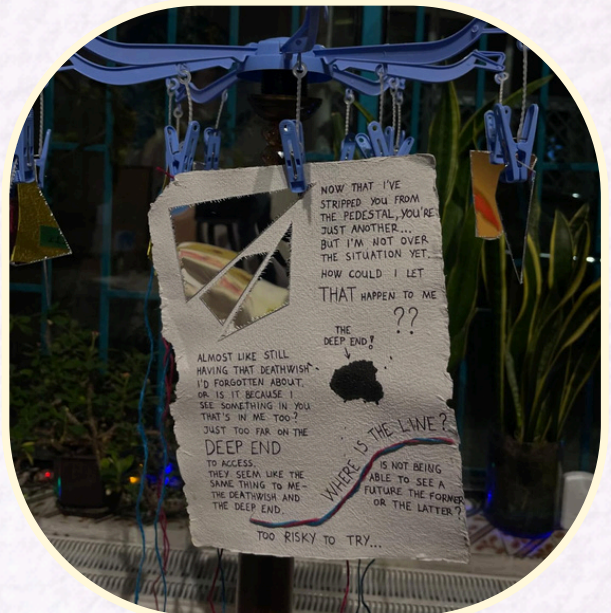 NOW THAT I'VE
STRIPPED YOU FROM
THE PEDESTAL, YOU'RE
JUST ANOTHER...
BUT I'M NOT OVER
THE SITUATION YET.
HOW COULD I LET
THAT HAPPEN TO ME
??
THE
DEEP END!
ALMOST LIKE STILL
HAVING THAT DEATHWISH
I'D FORGOTTEN ABOUT.
OR IS IT BECAUSE I
SEE SOMETHING IN YOU
THAT'S IN ME TOO?
JUST TOO FAR ON THE
DEEP END
TO ACCESS.
THEY SEEM LIKE THE
SAME THING TO ME-
THE DEATHWISH AND
THE DEEP END.
WHERE IS THE LINE?
IS NOT BEING
ABLE TO SEE A
FUTURE THE FORMER
OR THE LATTER?
TOO RISKY TO TRY...